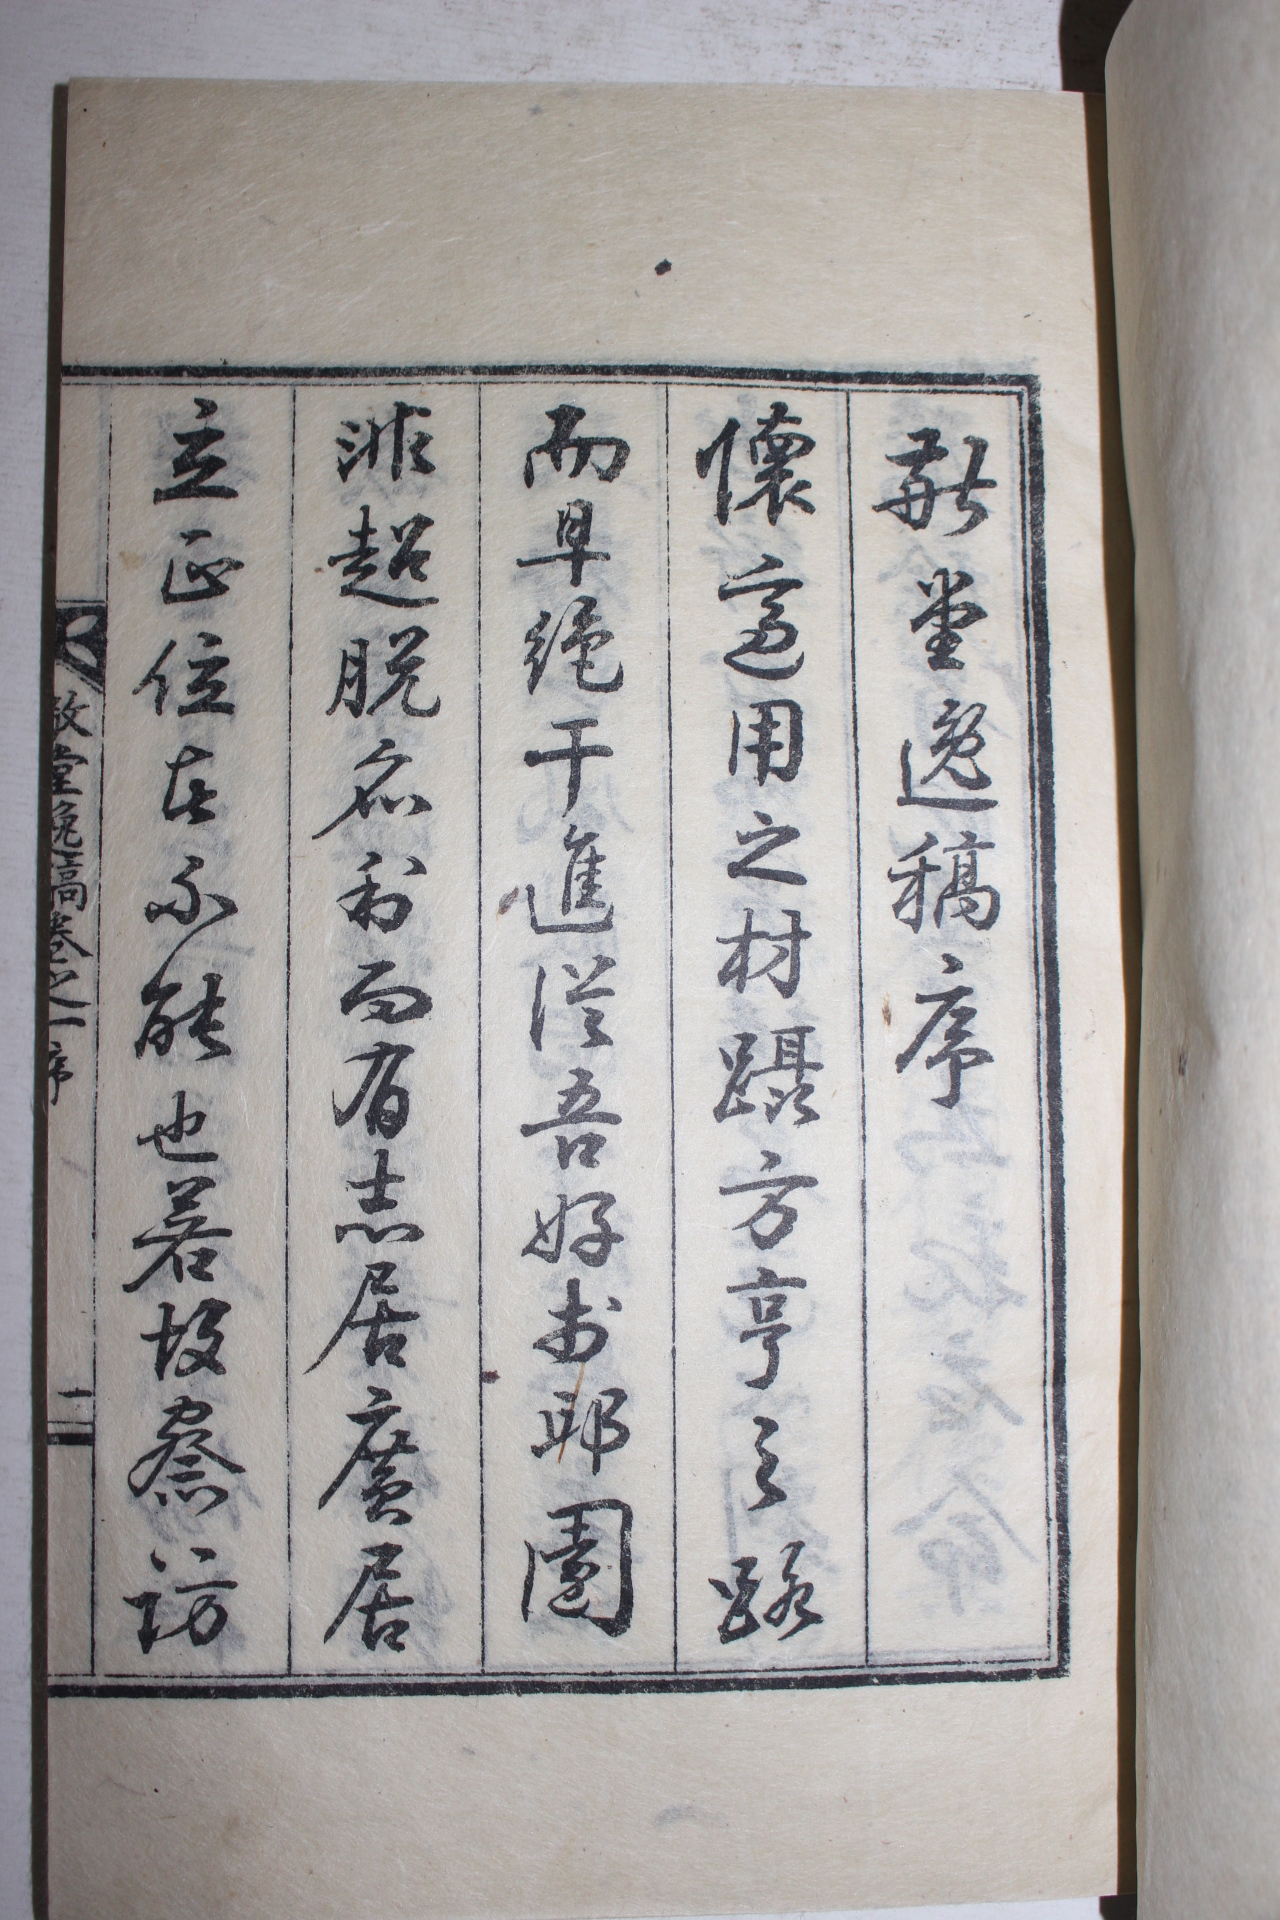 敬堂逸稿序
懷適用之材躡方亨之路
而早絕干進從吾好於邱園
非超脫名利而有志居廣居
立正位者不能也若故察訪
敬堂逸稿卷之一序
一